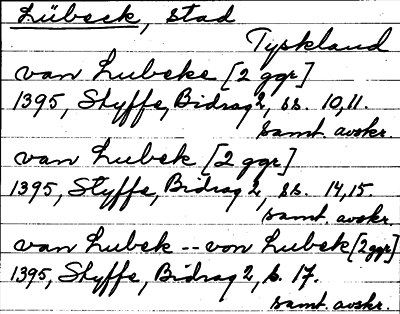 Lübeck, stad
Tyskland
van Lubeke [2 ggr]
1395, Styffe, Bidrag 2, ss. 10, 11.
samt. avskr.
van Lubek [2 ggr]
1395, Styffe, Bidrag 2, ss. 14, 15.
samt. avskr.
van Lubek -- von Lubek [2 ggr]
1395, Styffe, Bidrag 2, s. 17.
samt. avskr.